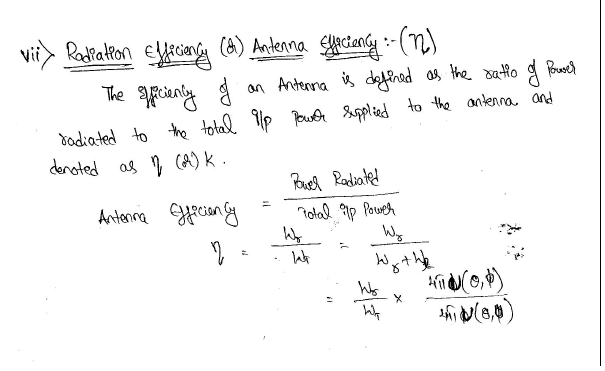 vii> Radiation Efficiency (or) Antenna Efficiency :- (η)
The efficiency of an Antenna is defined as the ratio of Power
radiated to the total i/p Power Supplied to the antenna and
denoted as η (or) k.
Antenna Efficiency = Power Radiated / Total i/p Power
η = Wr / Wt = Wr / Wr + Wl
= Wr / WT × 4π U(θ,φ) / 4π U(θ,φ)